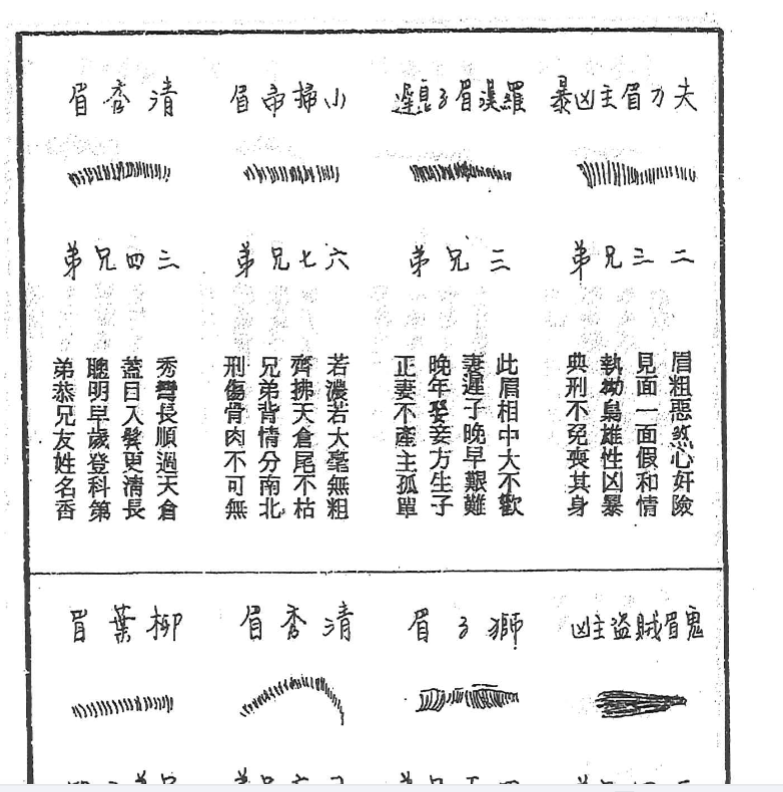 夫刀眉主凶暴
二三兄弟
眉粗惡煞心奸險
見面一面假和情
執拗梟雄性凶暴
典刑不免喪其身
羅漢眉子息遲
三兄弟
此眉相中大不歡
妻遲子晚早艱難
晚年娶妾方生子
正妻不產主孤單
小掃帚眉
六七兄弟
若濃若大毫無粗
齊拂天倉尾不枯
兄弟背情分南北
刑傷骨肉不可無
清秀眉
三四兄弟
秀彎長順過天倉
蓋目入鬢更清長
聰明早歲登科第
弟恭兄友姓名香
鬼眉賊盜主凶
獅子眉
清秀眉
柳葉眉